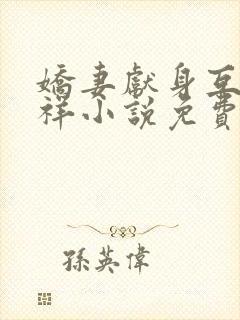 嬌妻獻身互
祥小說免費
孫英偉